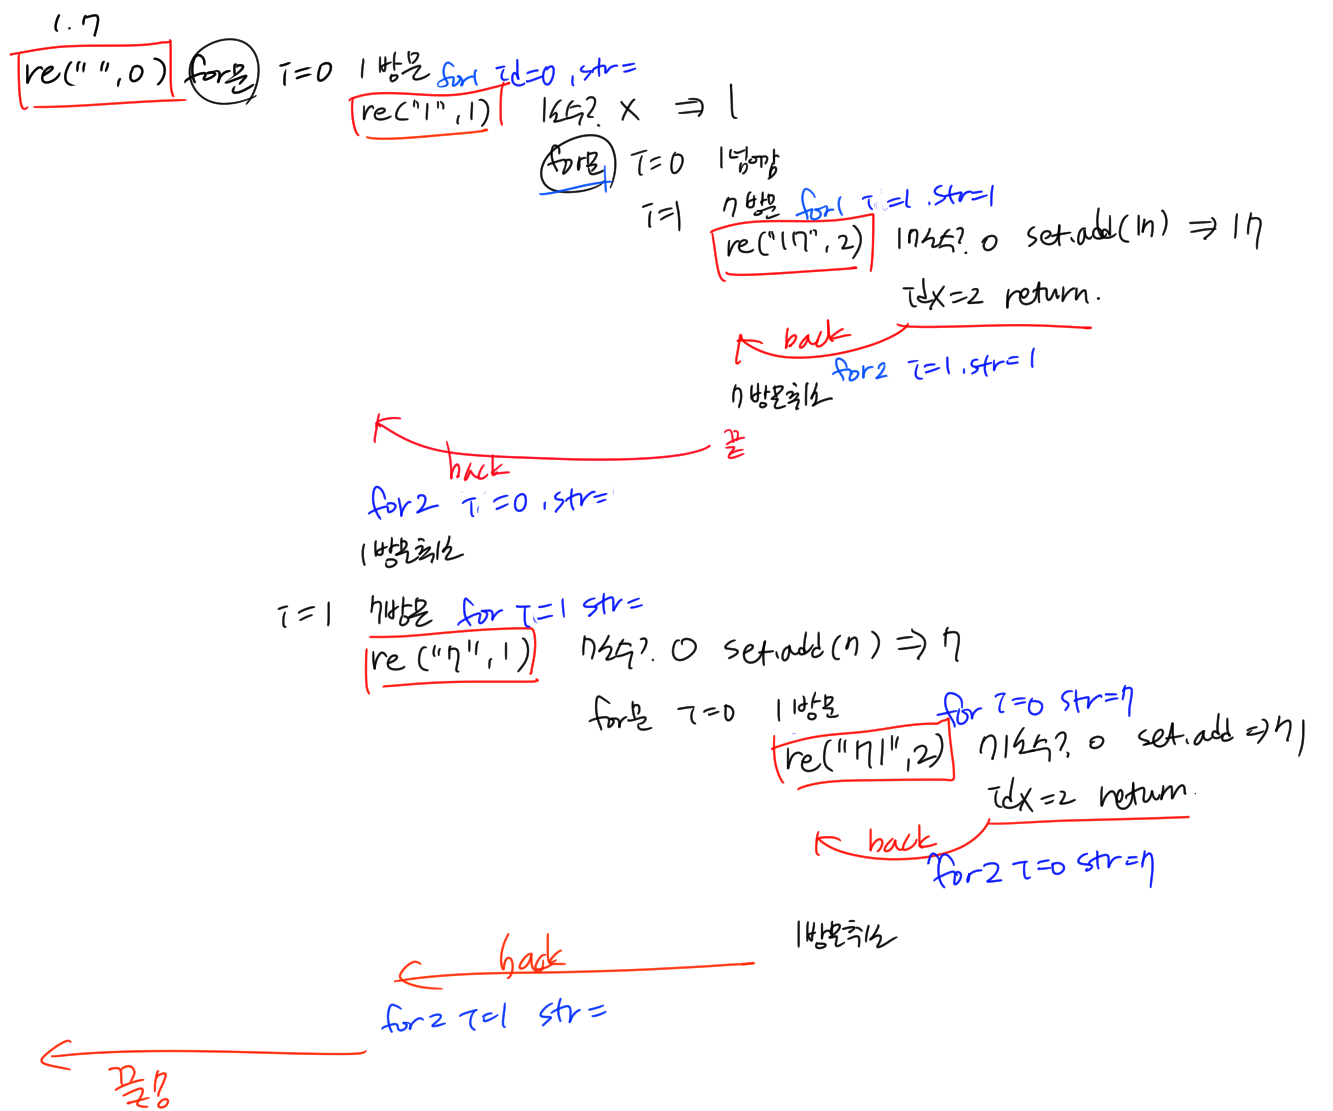 1. 7
re(" ", 0) for문 i=0 1 방문 for1 id=0, str=
re("1", 1) 1소수? X ⇒ 1
for문 i=0 1넘어감
i=1 7 방문 for1 i=1. str=1
re("17", 2) 17소수? O set.add(17) ⇒ 17
idx=2 return.
back
for2 i=1. str=1
7 방문취소
끝
back
for2 i=0, str=
1 방문취소
i=1 7방문 for i=1 str=
re("7", 1) 7소수? O set.add(7) ⇒ 7
for문 i=0 1방문 for i=0 str=7
re("71", 2) 71소수? O set.add ⇒ 71
idx=2 return.
back
for2 i=0 str=7
1방문취소
back
for2 i=1 str=
끝!